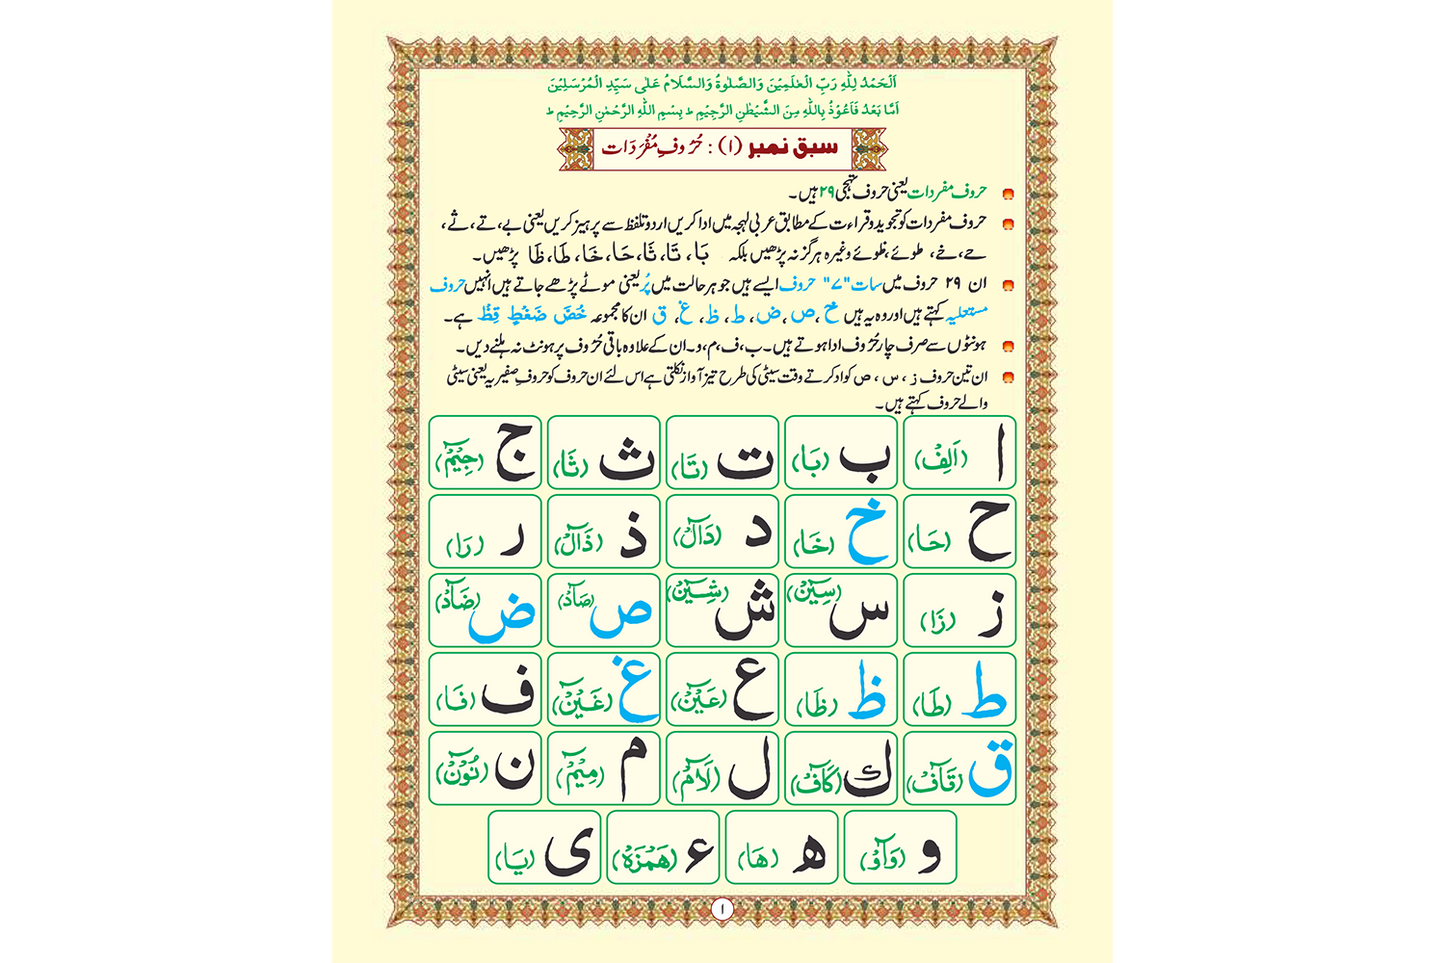 اَلْحَمْدُ لِلّٰهِ رَبِّ الْعٰلَمِیْنَ وَالصَّلٰوةُ وَالسَّلَامُ عَلٰی سَیِّدِ الْمُرْسَلِیْنَ
اَمَّا بَعْدُ فَاَعُوْذُ بِاللّٰهِ مِنَ الشَّیْطٰنِ الرَّجِیْمِ ط بِسْمِ اللّٰهِ الرَّحْمٰنِ الرَّحِیْمِ ط
سبق نمبر (۱) : حُرُوفِ مُفْرَدَات
حروف مفردات یعنی حروف تہجی ۲۹ ہیں۔
حروف مفردات کو تجوید و قراءت کے مطابق عربی لہجہ میں ادا کریں اردو تلفظ سے پرہیز کریں یعنی بے، تے، ثے،
حے، خے، طوئے، ظوئے وغیرہ ہرگز نہ پڑھیں بلکہ بَا، تَا، ثَا، حَا، خَا، طَا، ظَا پڑھیں۔
ان ۲۹ حروف میں سات "۷" حروف ایسے ہیں جو ہر حالت میں پُر یعنی موٹے پڑھے جاتے ہیں انہیں حروف
مستعلیہ کہتے ہیں اور وہ یہ ہیں خ، ص، ض، ط، ظ، غ، ق ان کا مجموعہ خُصَّ ضَغْطٍ قِظْ ہے۔
ہونٹوں سے صرف چار حُرُوف ادا ہوتے ہیں۔ ب، ف، م، و۔ ان کے علاوہ باقی حُرُوف پر ہونٹ نہ ہلنے دیں۔
ان تین حروف ز، س، ص کو ادا کرتے وقت سیٹی کی طرح تیز آواز نکلتی ہے اس لئے ان حروف کو حروفِ صفیریہ یعنی سیٹی
والے حروف کہتے ہیں۔
ا (اَلِفْ) ب (بَا) ت (تَا) ث (ثَا) ج (جِیْمْ)
ح (حَا) خ (خَا) د (دَالْ) ذ (ذَالْ) ر (رَا)
ز (زَا) س (سِیْنْ) ش (شِیْنْ) ص (صَادْ) ض (ضَادْ)
ط (طَا) ظ (ظَا) ع (عَیْنْ) غ (غَیْنْ) ف (فَا)
ق (قَافْ) ك (کَافْ) ل (لَامْ) م (مِیْمْ) ن (نُوْنْ)
و (وَاوْ) ھ (ھَا) ء (ھَمْزَہ) ی (یَا)
۱